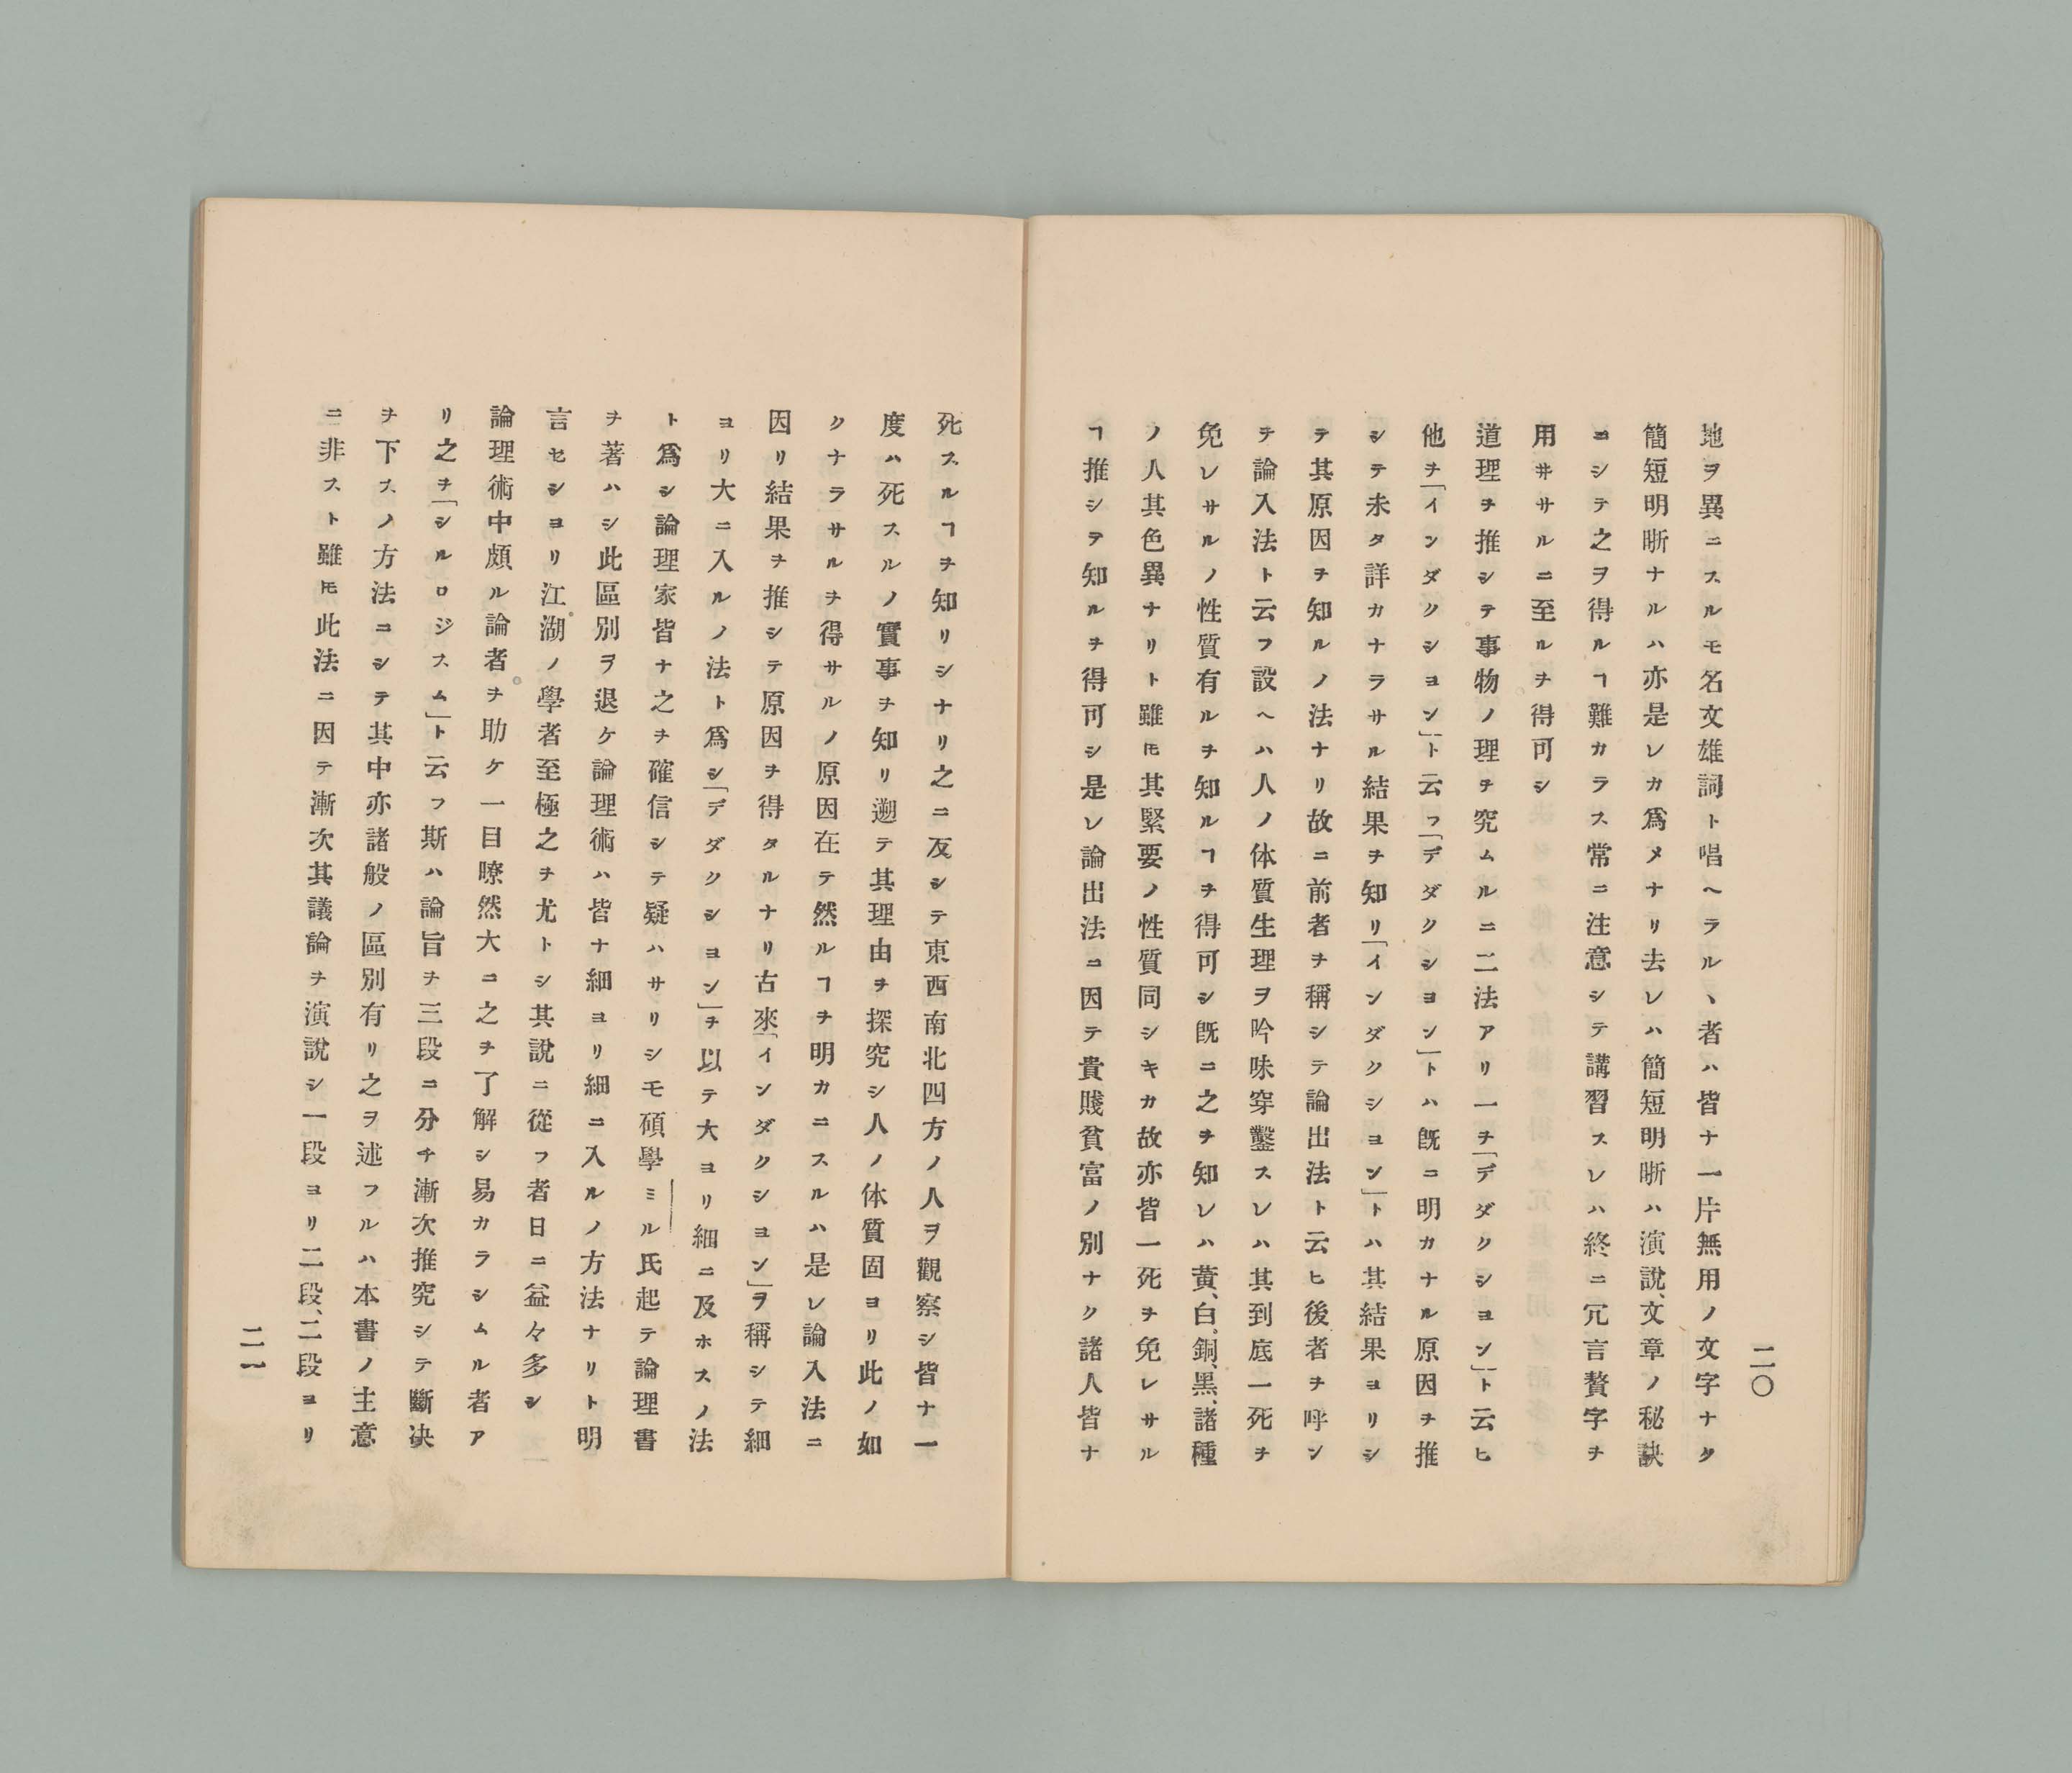 二〇
地ヲ異ニスルモ名文雄詞ト唱ヘラルヽ者ハ皆ナ一片無用ノ文字ナク
簡短明晣ナルハ亦是レカ爲メナリ去レハ簡短明晣ハ演說、文章ノ秘訣
ニシテ之ヲ得ルヿ難カラス常ニ注意シテ講習スレハ終ニ冗言贅字ヲ
用井サルニ至ルヲ得可シ
道理ヲ推シテ事物ノ理ヲ究ムルニ二法アリ一ヲ「デダクシヨン」ト云ヒ
他ヲ「インダクシヨン」ト云フ「デダクシヨン」トハ既ニ明カナル原因ヲ推
シテ未タ詳カナラサル結果ヲ知リ「インダクシヨン」トハ其結果ヨリシ
テ其原因ヲ知ルノ法ナリ故ニ前者ヲ稱シテ論出法ト云ヒ後者ヲ呼ン
テ論入法ト云フ設ヘハ人ノ体質生理ヲ吟味穿鑿スレハ其到底一死ヲ
免レサルノ性質有ルヲ知ルヿヲ得可シ既ニ之ヲ知レハ黃、白、銅、黑、諸種
ノ人其色異ナリト雖𪜈其緊要ノ性質同シキカ故亦皆一死ヲ免レサル
ヿ推シテ知ルヲ得可シ是レ論出法ニ因テ貴賤貧富ノ別ナク諸人皆ナ
死スルヿヲ知リシナリ之ニ反シテ東西南北四方ノ人ヲ觀察シ皆ナ一
度ハ死スルノ實事ヲ知リ遡テ其理由ヲ探究シ人ノ体質固ヨリ此ノ如
クナラサルヲ得サルノ原因在テ然ルヿヲ明カニスルハ是レ論入法ニ
因リ結果ヲ推シテ原因ヲ得タルナリ古來「インダクシヨン」ヲ稱シテ細
ヨリ大ニ入ルノ法ト爲シ「デダクシヨン」ヲ以テ大ヨリ細ニ及ホスノ法
ト爲シ論理家皆ナ之ヲ確信シテ疑ハサリシモ碩學ミル氏起テ論理書
ヲ著ハシ此區別ヲ退ケ論理術ハ皆ナ細ヨリ細ニ入ルノ方法ナリト明
言セシヨリ江湖ノ學者至極之ヲ尤トシ其說ニ從フ者日ニ益々多シ
論理術中頗ル論者ヲ助ケ一目瞭然大ニ之ヲ了解シ易カラシムル者ア
リ之ヲ「シルロジスム」ト云フ斯ハ論旨ヲ三段ニ分チ漸次推究シテ斷决
ヲ下スノ方法ニシテ其中亦諸般ノ區別有リ之ヲ述フルハ本書ノ主意
ニ非スト雖𪜈此法ニ因テ漸次其議論ヲ演說シ一段ヨリ二段、二段ヨリ
二一